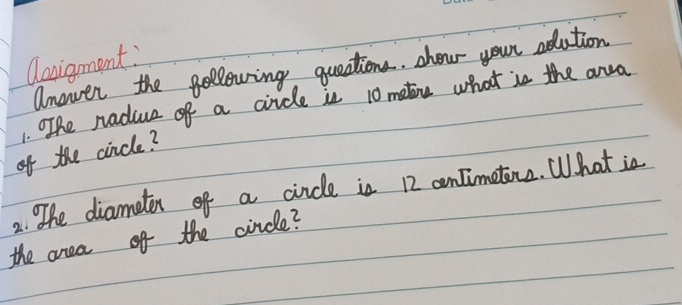 Assigment:
Answer the following questions. show your solution
1. The radius of a circle is 10 meters what is the area
of the circle?
2. The diameter of a circle is 12 centimeters. What is
the area of the circle?